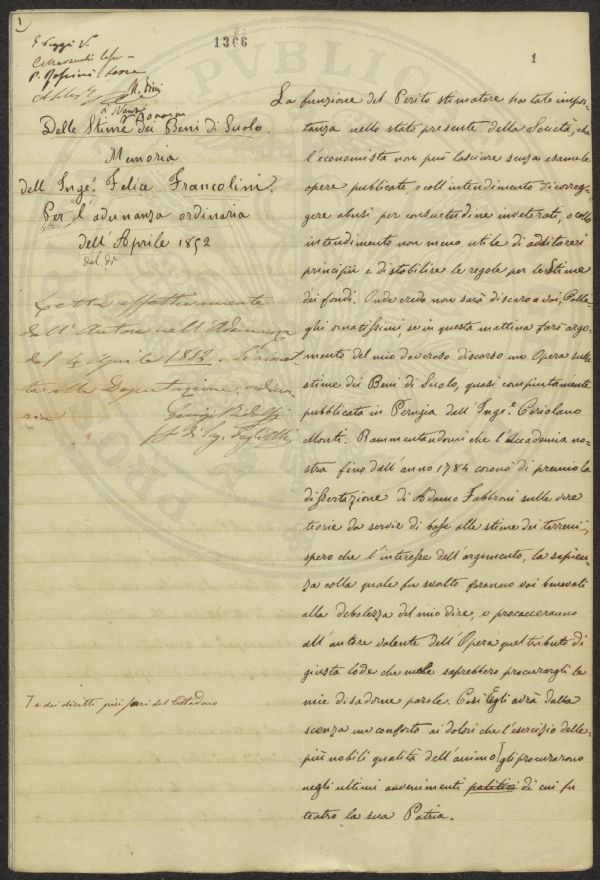 1
1366
1
Delle Stime dei Beni di Suolo.
Memoria
dell'Inge.e Felice Francolini.
Per l'adunanza ordinaria
dell'Aprile 1852
del dì
Letta effettivamente
dall'Autore nell'Adunanza
del 4 Aprile 1852.
alla Deputazione
La funzione del Perito stimatore ha tale impor-
tanza nello stato presente della Società, che
l'economista non può lasciare senza esame le
opere publicate, o coll'intendimento di correg-
gere abusi per consuetudine inveterati, o collo
intendimento non meno utile di additare i
principii e di stabilire le regole per le Stime
dei fondi. Onde credo non sarà discaro a voi, Colle-
ghi ornatissimi, se in questa mattina farò argo-
mento del mio doveroso discorso un Opera sulle
stime dei Beni di Suolo, quasi compiutamente
pubblicata in Perugia dall'Inge.e Coriolano
Monti. Rammentandomi che l'Accademia no-
stra fino dall'anno 1784 coronò di premio la
dissertazione di Adamo Fabbroni sulle vere
teorie da servir di base alle stime dei terreni,
spero che l'interesse dell'argomento, la sapien-
za colla quale fu svolto faranno voi benevoli
alla debolezza del mio dire, e procacceranno
all'autore valente dell'Opera quel tributo di
giusta lode che male saprebbero procurargli le
mie disadorne parole. Così Egli avrà dalla
scenza un conforto ai dolori che l'esercizio delle
più nobili qualità dell'animo gli procurarono
negli ultimi avvenimenti politici di cui fu
teatro la sua Patria.
e dei diritti più sacri del Cittadino
PVBLICA